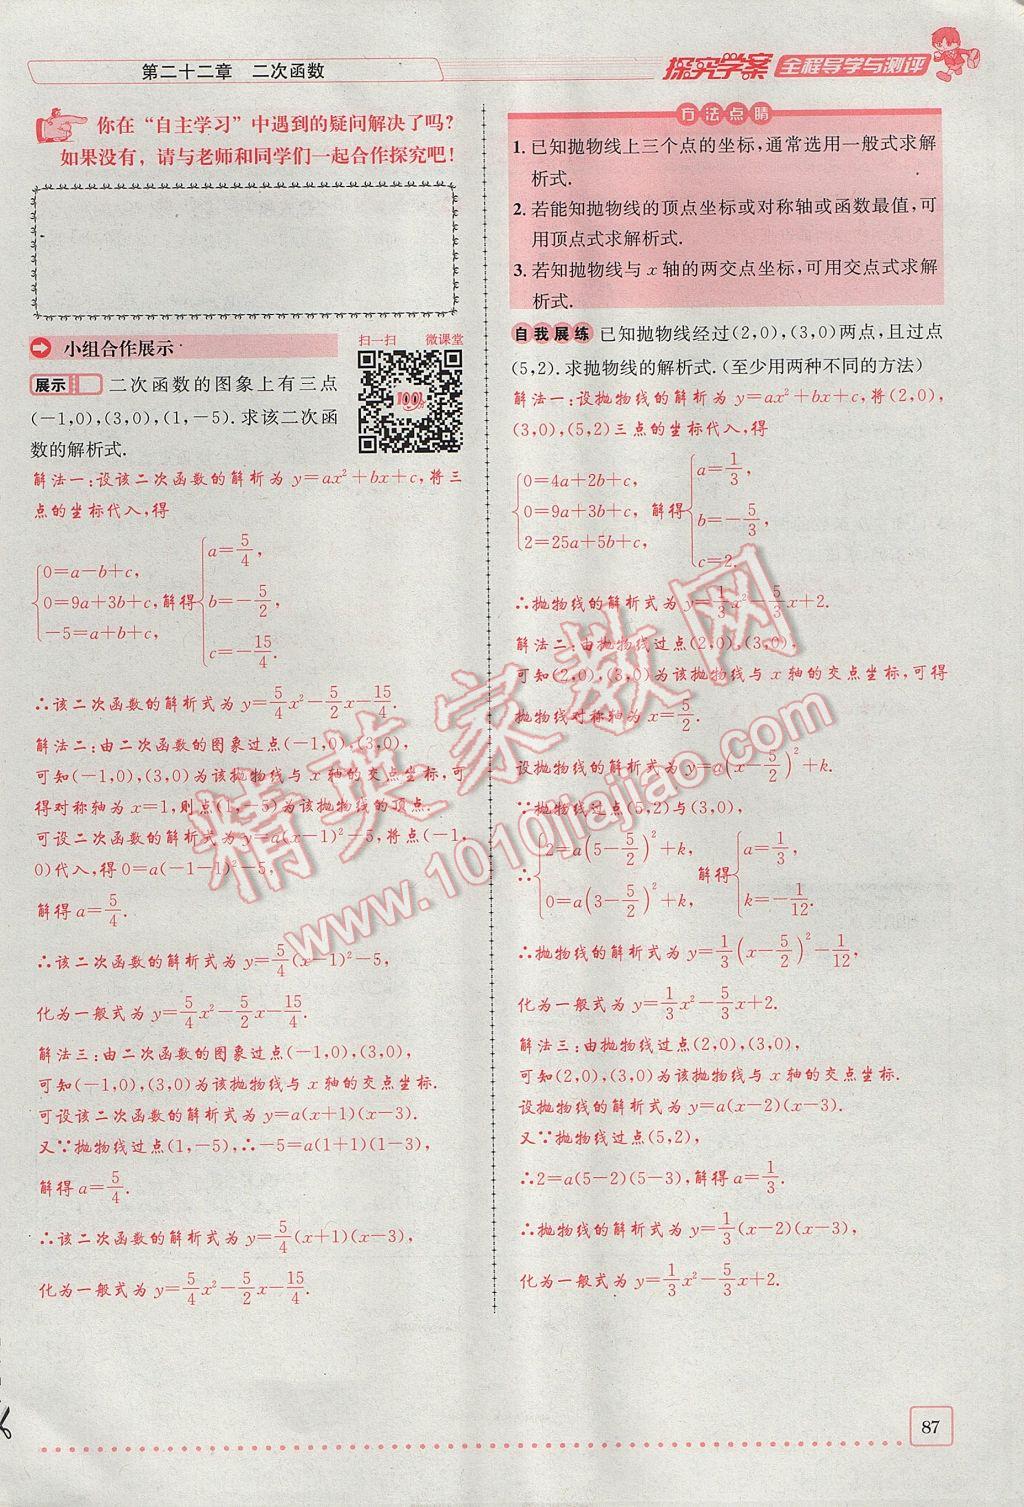 第二十二章 二次函数
探究学案 全程导学与测评
你在“自主学习”中遇到的疑问解决了吗?
如果没有,请与老师和同学们一起合作探究吧!
小组合作展示
扫一扫 微课堂
100分
展示 二次函数的图象上有三点
(-1,0),(3,0),(1,-5).求该二次函
数的解析式.
解法一:设该二次函数的解析为 y=ax²+bx+c,将三
点的坐标代入,得
{0=a-b+c,
0=9a+3b+c,
-5=a+b+c,
解得{a=5/4,
b=-5/2,
c=-15/4.
∴该二次函数的解析式为 y=5/4x²-5/2x-15/4.
解法二:由二次函数的图象过点(-1,0),(3,0),
可知(-1,0),(3,0)为该抛物线与 x 轴的交点坐标,可
得对称轴为 x=1,则点(1,-5)为该抛物线的顶点.
可设二次函数的解析式为 y=a(x-1)²-5,将点(-1,
0)代入,得 0=a(-1-1)²-5,
解得 a=5/4.
∴该二次函数的解析式为 y=5/4(x-1)²-5,
化为一般式为 y=5/4x²-5/2x-15/4.
解法三:由二次函数的图象过点(-1,0),(3,0),
可知(-1,0),(3,0)为该抛物线与 x 轴的交点坐标.
可设该二次函数的解析式为 y=a(x+1)(x-3).
又∵抛物线过点(1,-5),∴-5=a(1+1)(1-3),
解得 a=5/4.
∴该二次函数的解析式为 y=5/4(x+1)(x-3),
化为一般式为 y=5/4x²-5/2x-15/4.
方法点睛
1. 已知抛物线上三个点的坐标,通常选用一般式求解
析式.
2. 若能知抛物线的顶点坐标或对称轴或函数最值,可
用顶点式求解析式.
3. 若知抛物线与 x 轴的两交点坐标,可用交点式求解
析式.
自我展练 已知抛物线经过(2,0),(3,0)两点,且过点
(5,2).求抛物线的解析式.(至少用两种不同的方法)
解法一:设抛物线的解析为 y=ax²+bx+c,将(2,0),
(3,0),(5,2)三点的坐标代入,得
{0=4a+2b+c,
0=9a+3b+c,
2=25a+5b+c,
解得{a=1/3,
b=-5/3,
c=2.
∴抛物线的解析式为 y=1/3x²-5/3x+2.
解法二:由抛物线过点(2,0),(3,0),
可知(2,0),(3,0)为该抛物线与 x 轴的交点坐标,可得
抛物线对称轴为 x=5/2.
设抛物线的解析式为 y=a(x-5/2)²+k.
∵抛物线过点(5,2)与(3,0),
∴{2=a(5-5/2)²+k,
0=a(3-5/2)²+k,
解得{a=1/3,
k=-1/12.
∴抛物线的解析式为 y=1/3(x-5/2)²-1/12,
化为一般式为 y=1/3x²-5/3x+2.
解法三:由抛物线过点(2,0),(3,0),
可知(2,0),(3,0)为该抛物线与 x 轴的交点坐标.
设抛物线的解析式为 y=a(x-2)(x-3).
又∵抛物线过点(5,2),
∴2=a(5-2)(5-3),解得 a=1/3.
∴抛物线的解析式为 y=1/3(x-2)(x-3),
化为一般式为 y=1/3x²-5/3x+2.
精英家教网
www.1010jiajiao.com
87